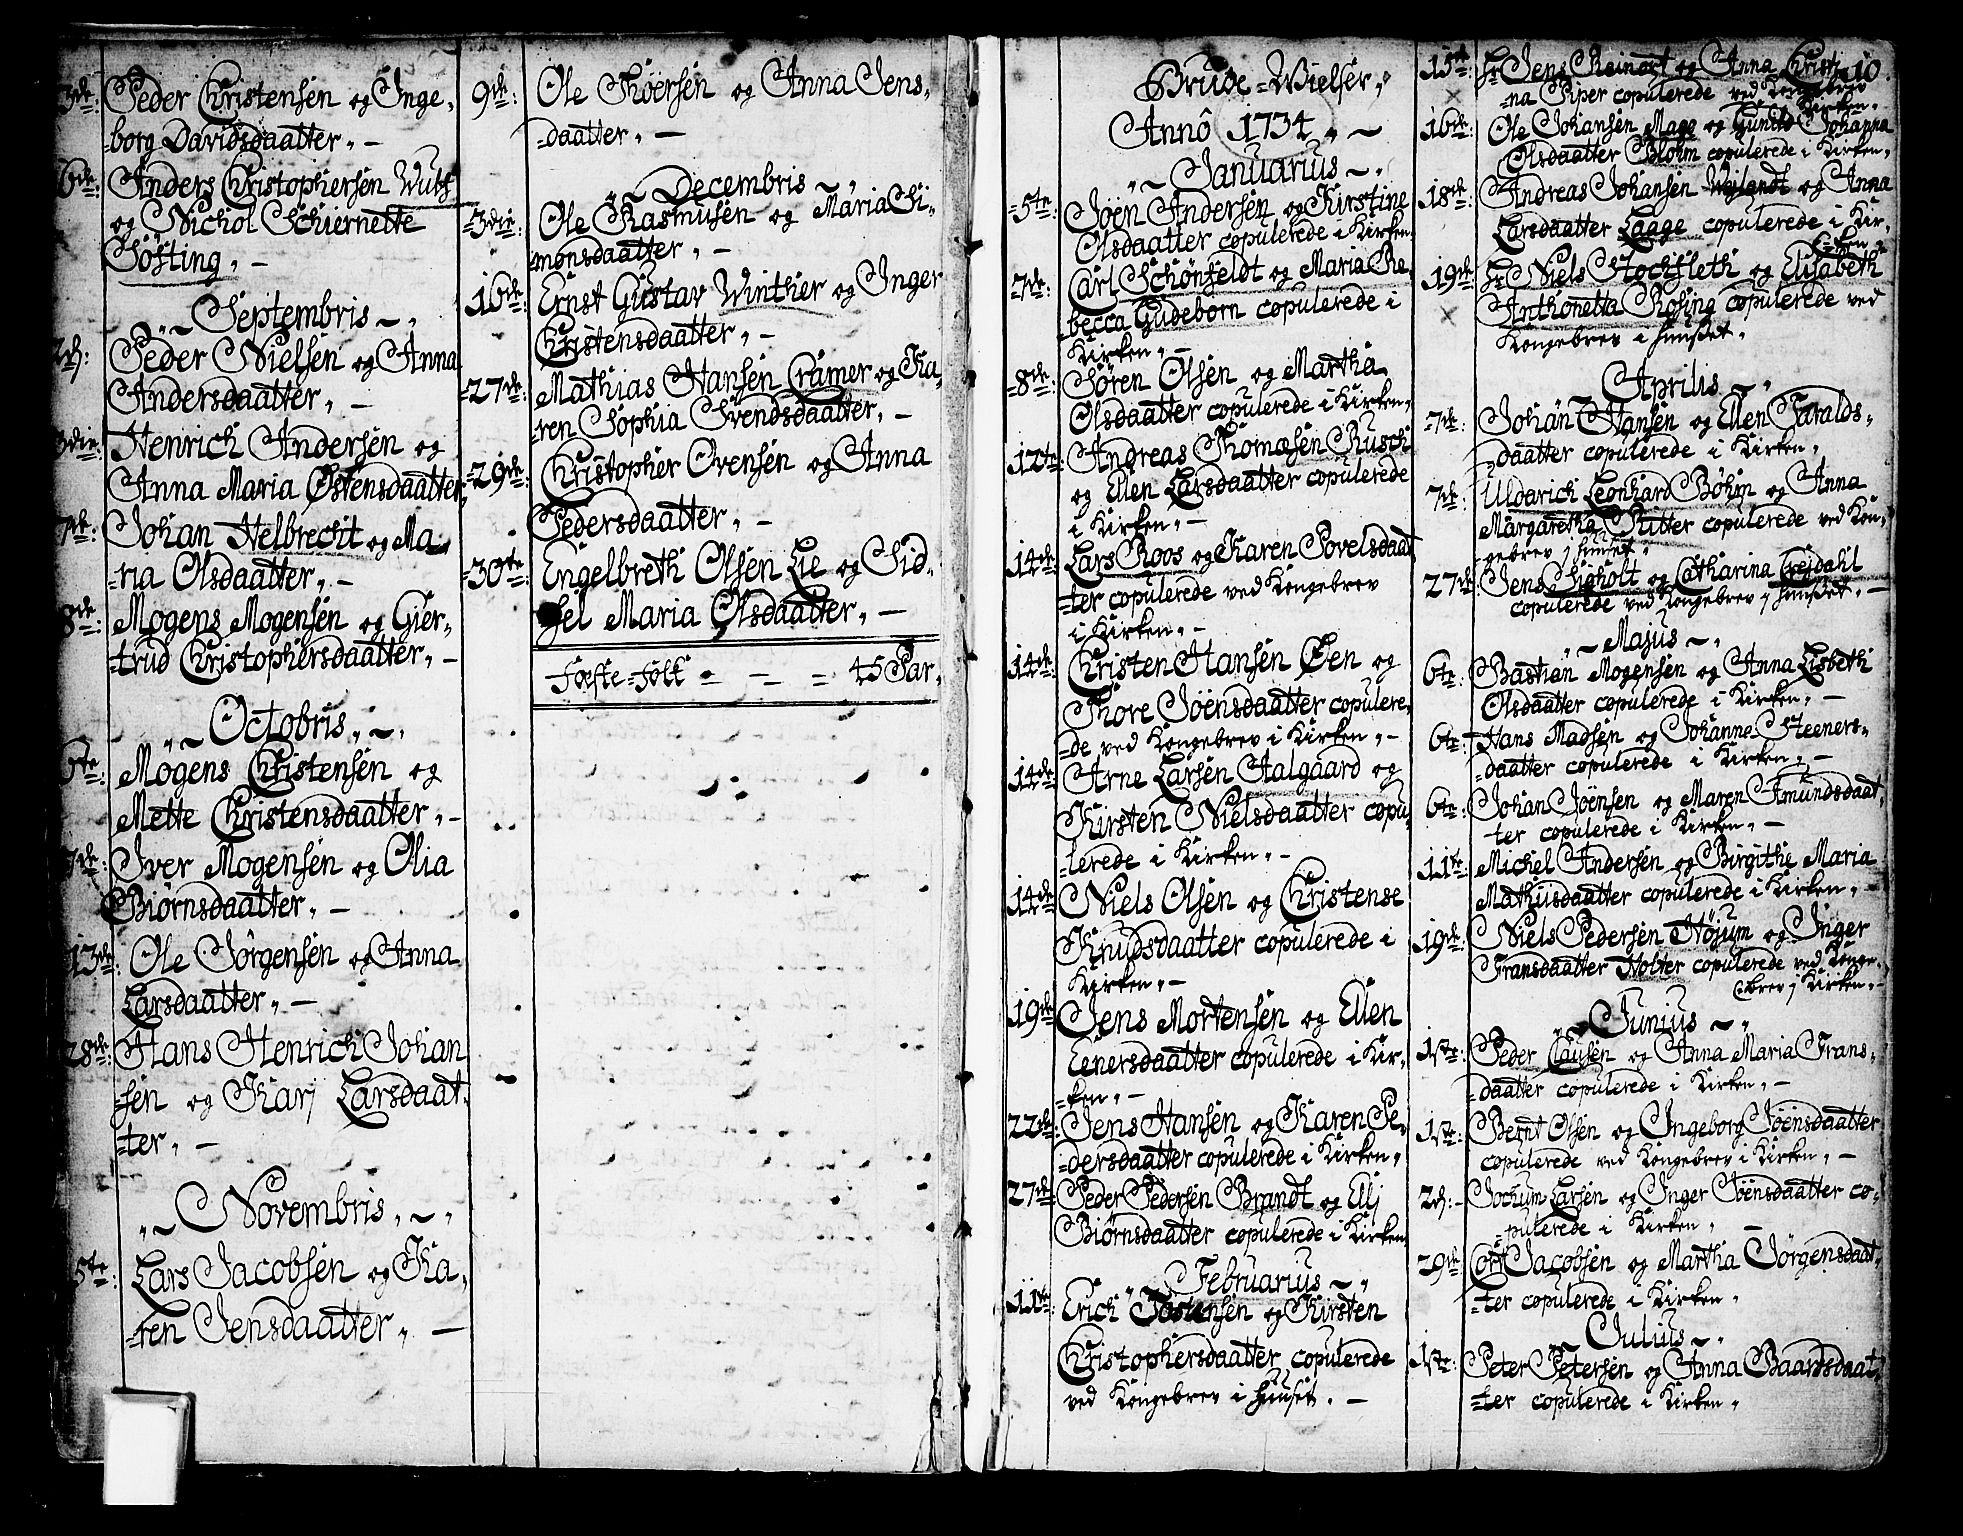 3de: Peder Christensen og Inge-
-borg Davidsdaatter, -
6de: Anders Christophersen Wulf
og Nichol Schiernette
Söfting, -
Septembris
2d: Peder Nielsen og Anna
Andersdaatter, -
3die: Henrich Andersen og
Anna Maria Østensdaatter,
7de: Johan Helbrecht og Ma-
-ria Olsdaatter, -
8de: Mogens Mogensen og Gier-
-trud Christophersdaatter, -
Octobris
Mogens Christensen og
Mette Christensdaatter, -
7de: Iver Mogensen og Olia
Biørnsdaatter, -
13de: Ole Jörgensen og Anna
Larsdaatter, -
28de: Hans Henrich Johan
-sen og Karj Larsdaat-
-ter, -
Novembris
5te: Lars Jacobsen og Ka-
-ren Jensdaatter, -
9de: Ole Thoersen og Anna Jens-
-daatter, -
Decembris
3die: Ole Rasmusen og Maria Si-
-monsdaatter, -
16de: Ernst Gustav Winther og Inger
Christensdaatter, -
27de: Mathias Hansen Cramer og Ka-
-ren Sophia Svendsdaatter, -
29de: Christopher Ovensen og Anna
Pedersdaatter, -
30te: Engelbreth Olsen Lie og Sid-
-sel Maria Olsdaatter, -
Fæste-Folk - - - 45 Par,
Brude-Wielser,
Annô 1734
Januarius
5te: Joën Andersen og Kirstine
Olsdaatter copulerede i Kirken,
7de: Carl Schönfeldt og Maria Re-
-becca Gudeborn copulerede i
Kirken, -
8de: Sören Olsen og Martha
Olsdaatter copulerede i Kirken,
12te: Andreas Thomæsen Rusch
og Ellen Larsdaatter copulerede
i Kirken, -
14de: Lars Roos og Karen Povelsdaat
-ter copulerede ved Kongebrev
i Kirken, -
14de: Christen Hansen Øen og
Thore Joënsdaatter copulere-
-de ved Kongebrev i Kirken, -
14de: Arne Larsen Aalgaard og
Kirsten Nielsdaatter copu-
-lerede i Kirken, -
14de: Niels Olsen og Christense
Knudsdaatter copulerede i
Kirken, -
19de: Jens Mortensen og Ellen
Eenersdaatter copulerede i Kir-
-ken, -
22de: Jens Hansen og Karen Pe-
-dersdaatter copulerede i Kirken,
27de: Peder Pedersen Brandt og Elj
Biørnsdaatter copulerede i Kirken
Februarius
11te: Erich Tostensen og Kirsten
Christophersdaatter copulerede
ved Kongebrev i Huuset. -
10.
15de: Hr Jens Reinert og Anna Christi-
-na Piper copulerede ved Kongebrev
i Kirken.
16de: Ole Johansen Mage og Gunild Johanna
Olsdaatter Blohm copulerede i Kirken,
18de: Andreas Johansen Weylandt og Anna
Larsdaatter Laage copulerede i Kir-
-ken,
19de: Hr Niels Stochfleth og Elisabeth
Anthonetta Rosing copulerede ved
Kongebrev i Huuset.
Aprilis
7de: Johan Hansen og Ellen Taralds-
-daatter copulerede i Kirken,
7de: Uldarich Leonhard Böhm og Anna
Margaretha Ritter copulerede ved Kon-
-gebrev j Huuset,
27de: Jens Sigholt og Catharina Crejdahl
copulerede ved Kongebrev j Huuset. -
Majus
6te: Bastian Mogensen og Anna Lisbeth
Olsdaatter copulerede i Kirken, -
6te: Hans Madsen og Johanna Steeners-
-daatter copulerede i Kirken, -
6te: Johan Joënsen og Maren Amundsdaat-
-ter copulerede i Kirken, -
11te: Michel Andersen og Birgithe Maria
Mathiisdaatter copulerede i Kirken, -
19de: Niels Pedersen Höjum og Inger
Fransdaatter Holter copulerede ved Konge-
-brev j Kirken, -
Junius
1ste: Peder Clausen og Anna Maria Frans-
-daatter copulerede i Kirken, -
1ste: Bernt Olsen og Ingeborg Joënsdaatter
copulerede ved Kongebrev i Kirken, -
2d: Jochum Larsen og Inger Joënsdaatter co-
-pulerede i Kirken, -
29de: Cort Jacobsen og Martha Jörgensdaat-
-ter copulerede i Kirken,
Julius
1ste: Peter Petersen og Anna Baardsdaat-
-ter copulerede i Kirken,